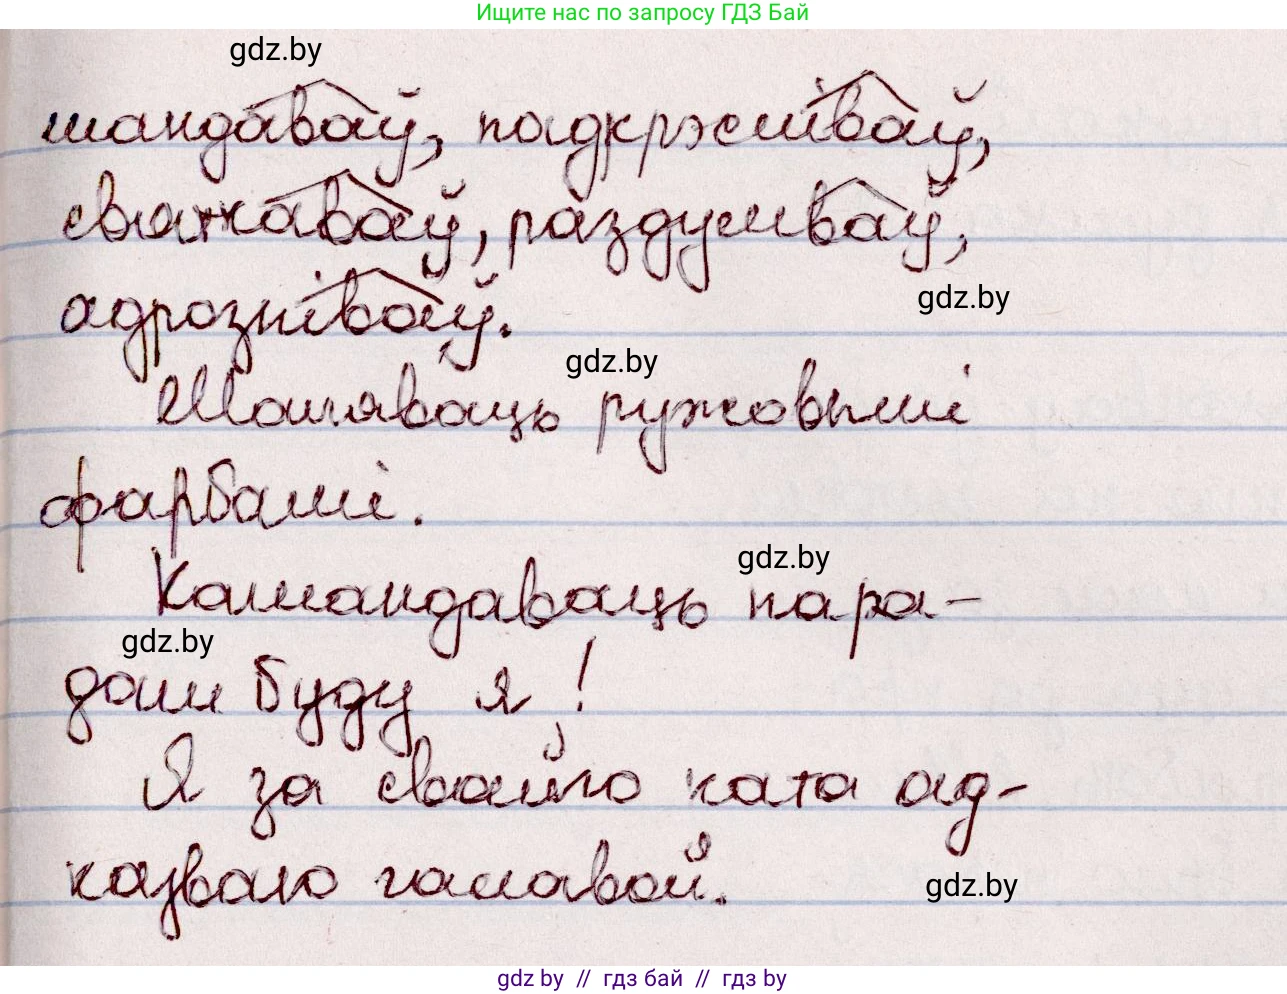 Ищите нас по запросу ГДЗ Бай
gdz.by
мандаваў, падкрэсліваў,
сватаваў, раздумваў,
gdz.by
адрозніваў.
gdz.by
Маляваць ружовымі
фарбамі.
gdz.by
Камандаваць пара-
gdz.by
дам буду я!
Я за свайго ката ад-
казваю галавой.
gdz.by
gdz by // гдз бай // гдз by